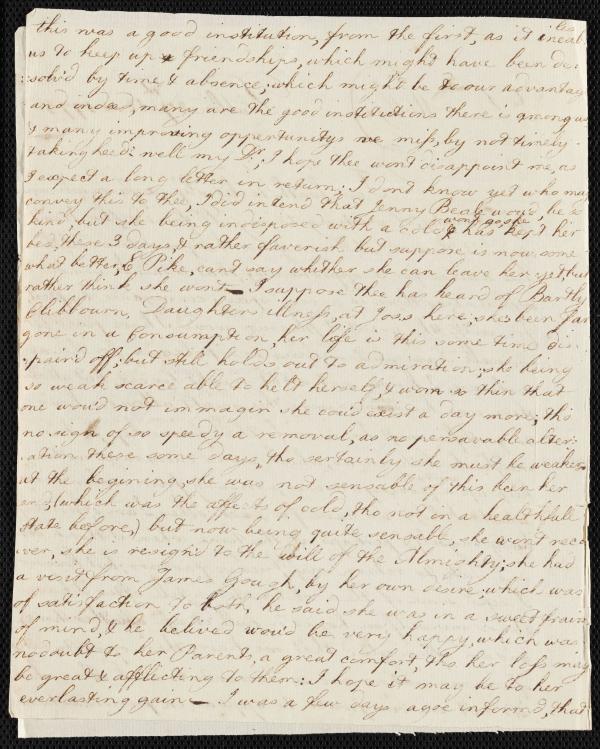 this was a good institution, from the first, as it ineables
us to keep up friendships, which might have been de=
:solv'd by time & absence; which might be to our advantage
and indeed, many are the good institutions there is among us
& many improving oppertunitys we miss, by not timely
taking heed: well my Dr; I hope thee wont disappoint me, as
I expect a long letter in return; I dont know yet who may
convey this to thee, I did intend that Jenny Beale wou'd, be so
kind but she being indisposed with a cold & has kept her
wont go, she
bed, these 3 days, & rather faverish but suppose is now some
what better, E Pike, cant say whither she can leave her yet but
rather think she wont — I suppose thee has heard of Bartly
Clibbourn, Daughter illness, at Joss here; she's been far
gone in a Consumption, her life is this some time dis
:paird off; but still holds out to admiration; she being
so weak scarce able to help herself, & worn so thin that
one wou'd not immagin she cou'd exist a day more; tho
no sign of so speedy a removal, as no persavable alter:
:ation these some days, tho sertainly she must be weaker
at the begining, she was not sensable of this
(which was the affects of cold, tho not in a healthfull
state before,) but now being quite sensable, she wont reco
ver, she is resign'd to the will of the Almighty; she had
a visit from James Gough, by her own desire, which was
of satisfaction to both, he said she was in a sweet fraim
of mind, & he belived wou'd be very happy, which was
no doubt to her Parents, a great comfort, tho her loss may
be great & afflicting to them: I hope it may be to her
everlasting gain — I was a few days agoe inform'd, that